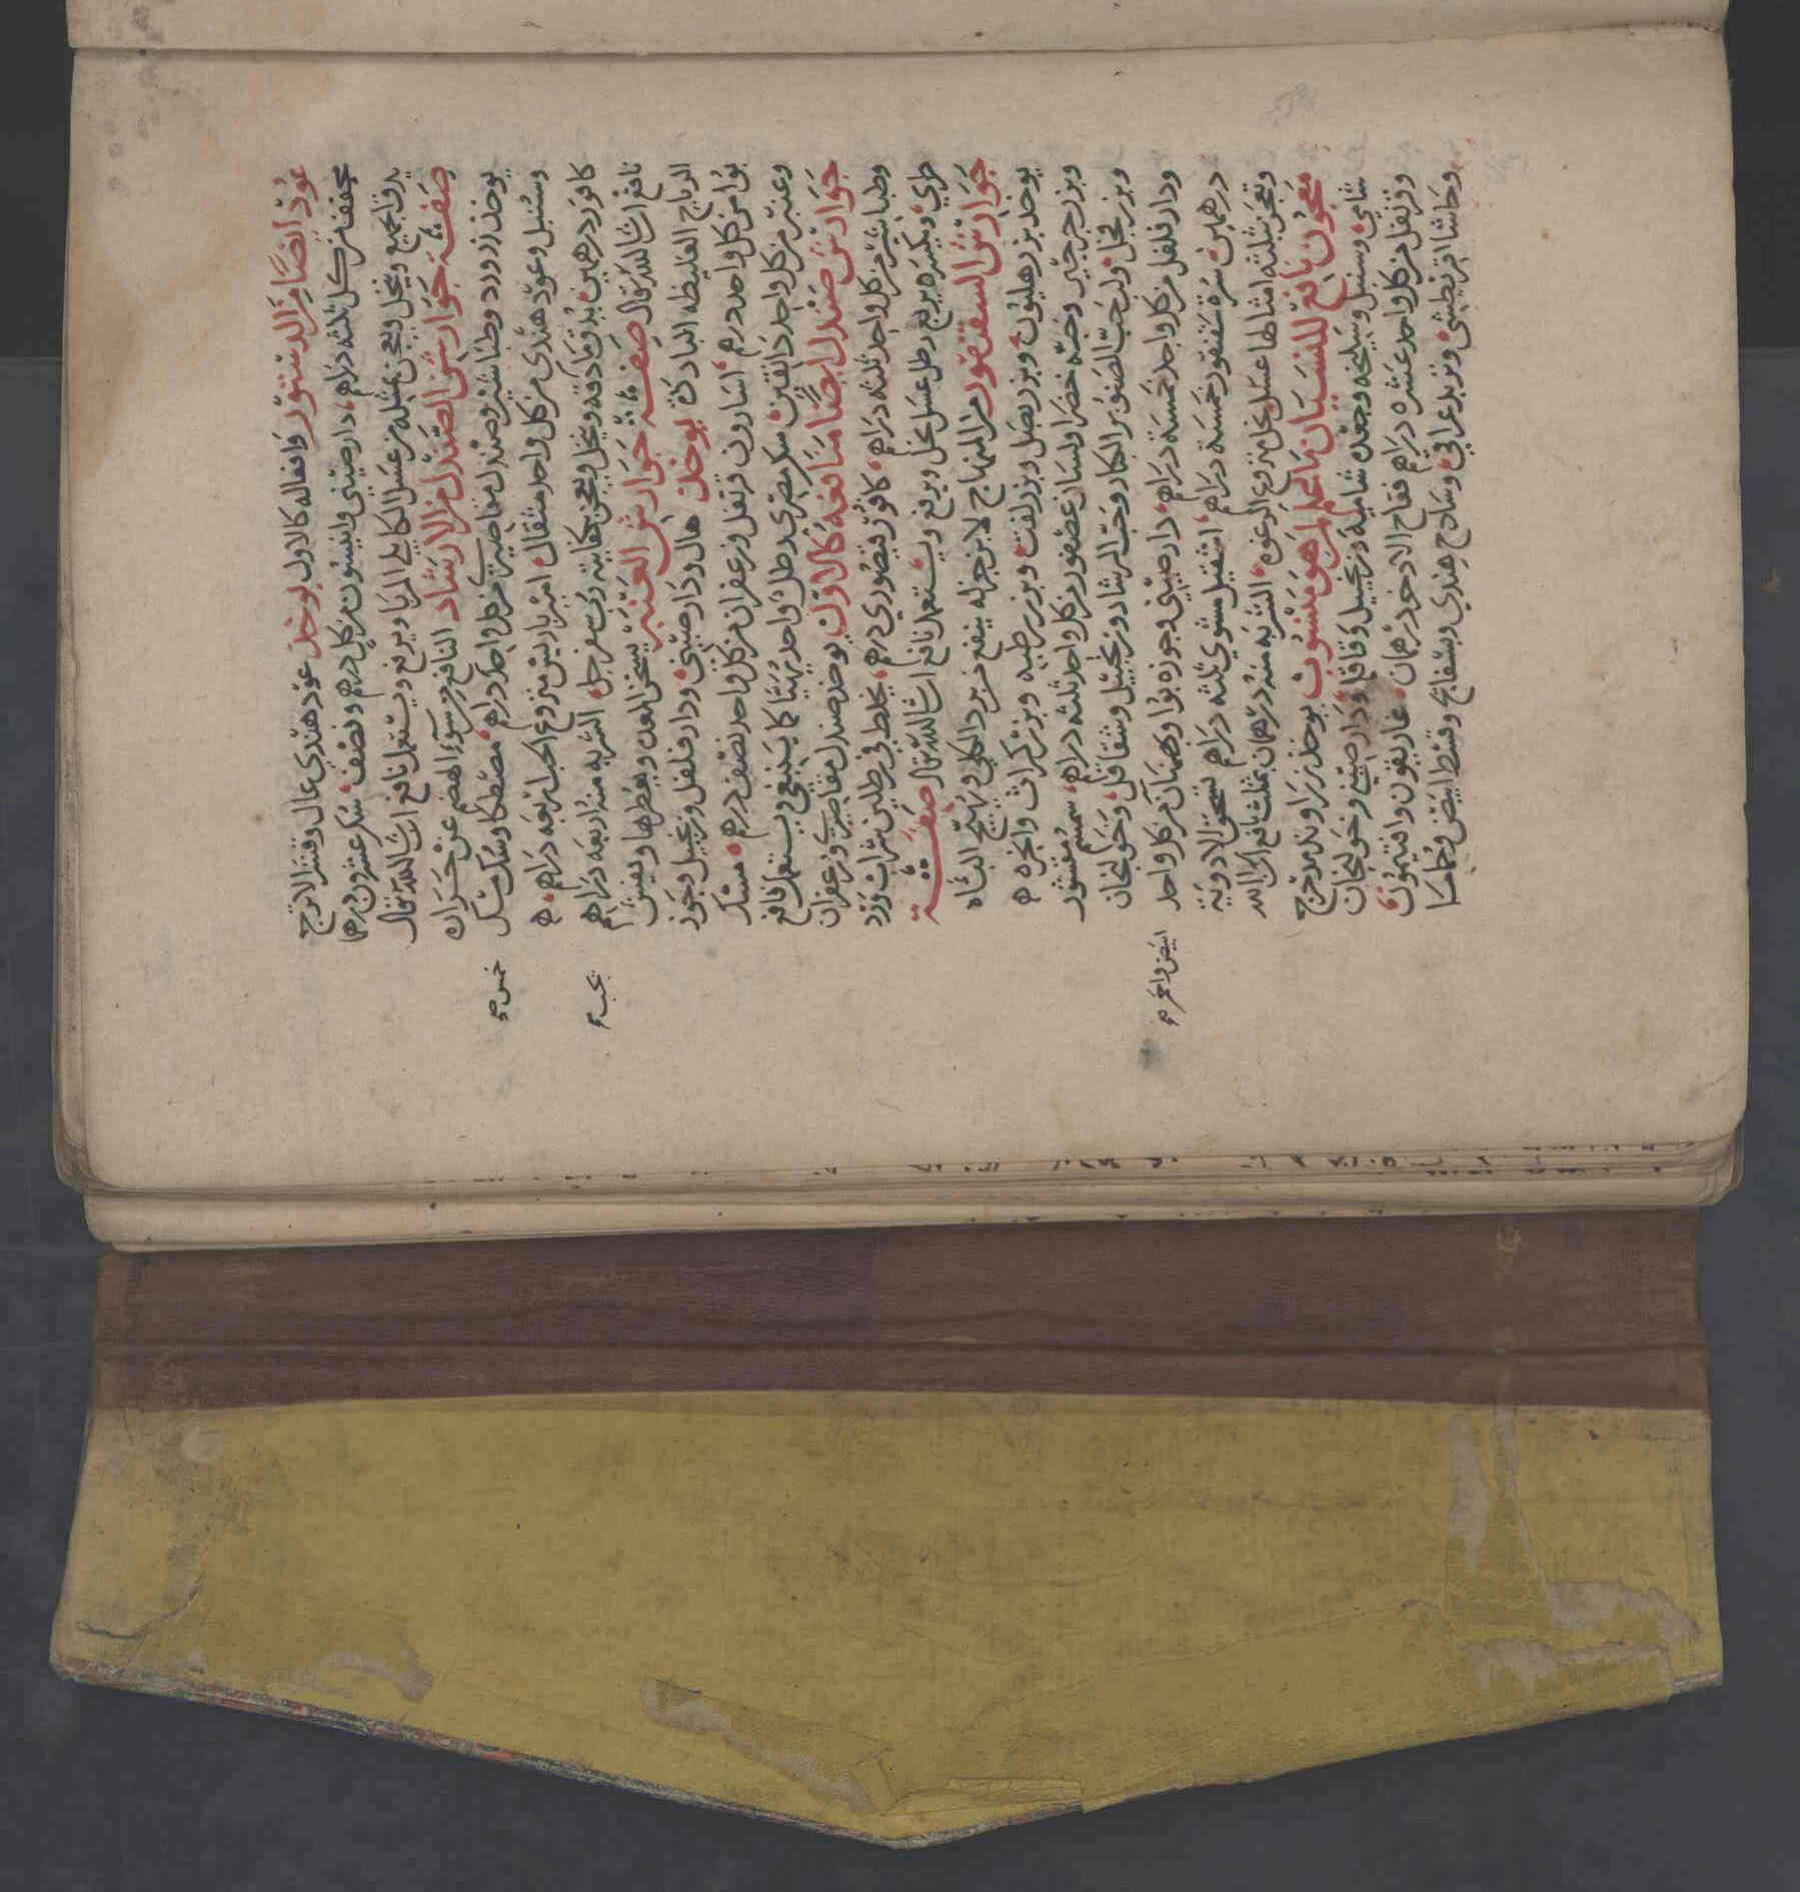 عود ايضا من الدستور وافعاله كالاول يوخذ عود هندي عال وقشر الاترج
مجفف من كل ثلثه دراهم، دارصيني وانيسون من كل درهم ونصف، سكر عشرون درهما
يدق الجميع وينخل ويعجن بمثله من عسل الكابلي المربا ويرفع ويستعمل نافع ان شا الله تعالى
صفة جوارش الصندل من الارشاد النافع من سوء الهضم عن حراره
يوخذ زر ورد وطباشير وصندل مقاصيري من كل واحد دراهم، مصطكا وسك مسك
وسنبل وعود هندي من كل واحد مثقال، امبرباريس منزوع الحب اربعه دراهم، ه
كافور درهمين، يدق ما دقه وينخل ويعجن بكفايته رب سفرجل، الشربه منه اربعه دراهم
نافع ان شا الله تعالى صفة جوارش العنبر يسخن المعده ويعطرها ويفش
الرياح الغليظه البارده يوخذ هال ودارصيني، ودارفلفل وزنجبيل وجوز
بوا من كل واحد درهم، اسارون قرنفل وزعفران من كل واحد نصف درهم، مسك
وعنبر من كل واحد دانقين، سكر مصري رطل واحد يهيا كما ينبغي ويستعمل نافع
جوارش صندل ايضا منافعه كالاول يوخذ صندل مقاصيري وزعفران
وطباشير من كل واحد ثلثه دراهم، كافور قيصوري درهم، يخلط في رطلين شراب ورد
طري، ويكسره بربع رطل عسل نحل ويرفع ويستعمل نافع ان شا الله تعالى صفة
جوارش السقنقور من المنهاج لابن جزله ينفع من برد الكلى ويهيج الباه
يوخذ بزر هليون، وبزر بصل وبزر لفت، وبزر رطبه وبزر كراث وانجره ه
وبزر جرجير وحبة خضرا ولسان عصفور من كل واحد ثلثه دراهم، سمسم مقشور
وبزر فجل، ولب حب الصنوبر الكبار وحب الرشاد وزنجبيل وشقاقل، وخولنجان
ودارفلفل من كل واحد خمسة دراهم، دارصيني وجوزه بوا وبهمنان من كل واحد
ابيض واحمر
درهمين، سرة سقنقور خمسة دراهم، اشقيل مشوي ثلثه دراهم تسحق الادويه
وتعجن بثلثه امثالها عسل نحل منزوع الرغوه، الشربه منه درهمان بمثلث نافع ان شا الله
معجون نافع للنسيان يوخذ زراوند مدحرج
شامي، وسنبل وسليخه وجعده شاميه وزنجبيل وفافل ودارصيني وخولنجان
وقرنفل من كل واحد عشره دراهم فقاح الاذخر درهمان، غاريقون وافتيمون
وحاشا اقريطشي، وتربد عراقي، وسادج هندي وبسفايج وقسط ابيض وحماما
خمس
بحب